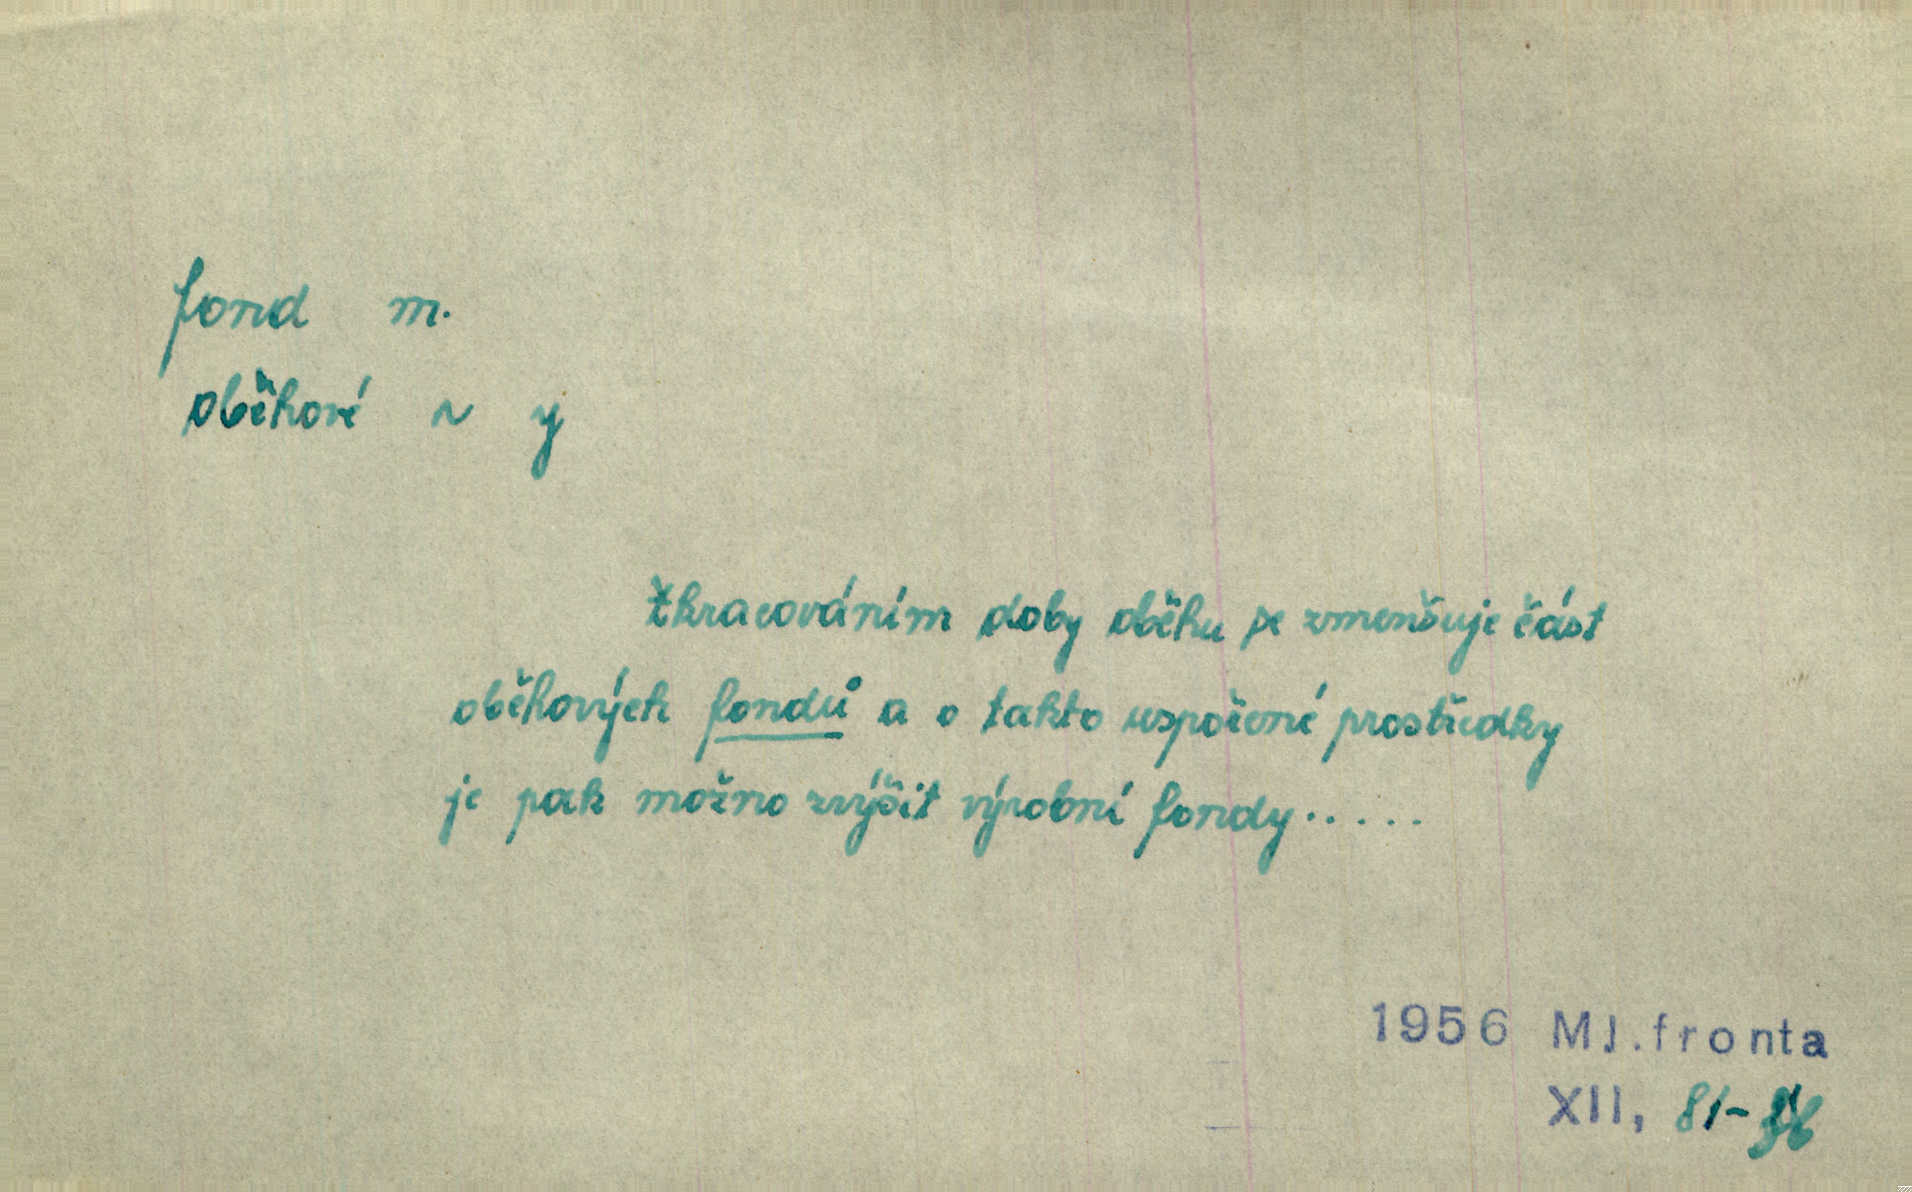 fond m.
oběhové ~ y
Zkracováním doby oběhu se zmenšuje část
oběhových fondů a o takto uspořené prostředky
je pak možno zvýšit výrobní fondy.....
1956 Ml.fronta
XII, 81-